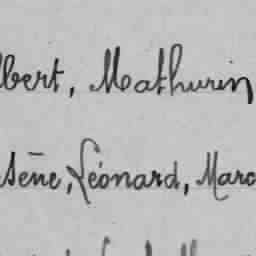 lbert, Mathurin
sène, Léonard, Marc